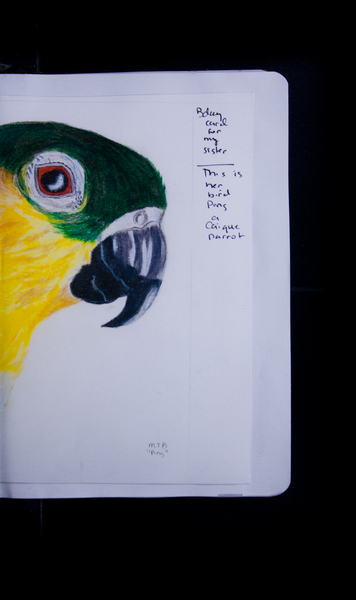 Bday
card
for
my
sister
This is
her
bird
Ping
a
Caique
parrot
M.T.B
"Ping"